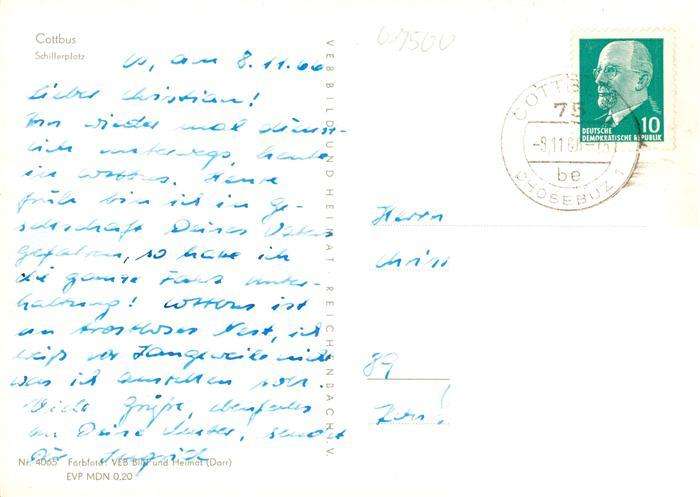 Cottbus
Schillerplatz
Co, am 8.11.66
Lieber Christian!
Bin wieder mal dienst-
lich unterwegs, heute
in Cottbus. Heute
früh bin ich in Ge-
sellschaft Deines Vaters
gefahren, so habe ich
die ganze Fahrt Unter-
haltung! Cottbus ist
ein trostloses Nest, ich
weiß vor Langeweile nicht
was ich anstellen soll.
Viele Grüße, ebenfalls
an Deine Mutter, sendet
Dir
Nr. 4065 Farbfoto: VEB Bild und Heimat (Darr)
EVP MDN 0,20
VEB BILD UND HEIMAT · REICHENBACH i. V.
COTTBUS
75
-9.11.66-
be
CHOŚEBUZ 1
10
DEUTSCHE
DEMOKRATISCHE REPUBLIK
Herrn
89